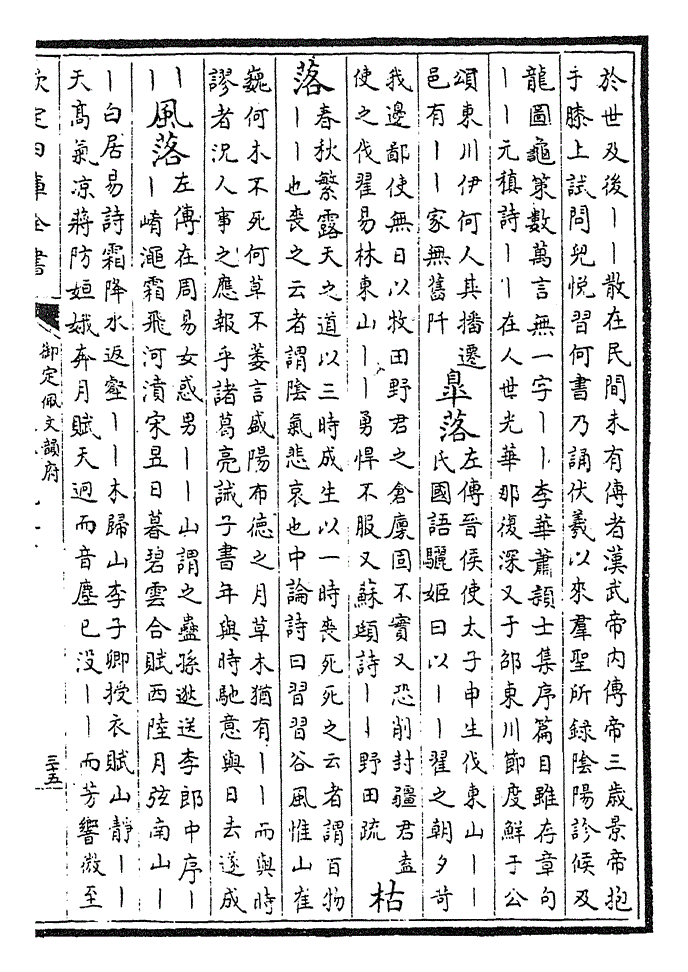 於世及後丨丨散在民間未有傳者漢武帝内傳帝三歳景帝抱
手膝上試問兒悦習何書乃誦伏羲以來羣聖所録陰陽診候及
龍圖龜策數萬言無一字丨丨李華蕭頴士集序篇目雖存章句
丨丨元稹詩丨丨在人世光華那復深又于邵東川節度鮮于公
頌東川伊何人其播遷
邑有丨丨家無舊阡
臯落
左傳晉侯使太子申生伐東山丨丨
氏國語驪姬曰以丨丨翟之朝夕苛
我邊鄙使無日以牧田野君之倉廩固不實又恐削封疆君盍
使之伐翟易林東山丨丨勇悍不服又蘇頲詩丨丨野田疏
枯
落
春秋繁露天之道以三時成生以一時喪死死之云者謂百物
丨丨也喪之云者謂陰氣悲哀也中論詩曰習習谷風惟山崔
巍何木不死何草不萎言盛陽布德之月草木猶有丨丨而與時
謬者况人事之應報乎諸葛亮誡子書年與時馳意與日去遂成
丨丨
風落
左傳在周易女惑男丨丨山謂之蠱孫逖送李郎中序丨
丨崤澠霜飛河濆宋昱日暮碧雲合賦西陸月弦南山丨
丨白居易詩霜降水返壑丨丨木歸山李子卿授衣賦山靜丨丨
天高氣凉蔣防姮娥奔月賦天迥而音塵已没丨丨而芳響微至
欽定四庫全書
御定佩文韻府
三十五